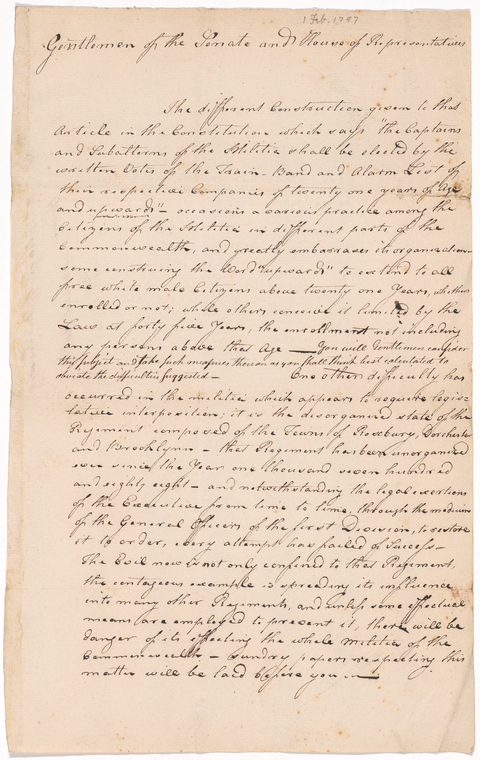 1 Feb. 1797
Gentlemen of the Senate and House of Representatives
The different Construction given to that
Article in the Constitution which says "the Captains
and Subalterns of the Militia shall be elected by the
written Votes of the Train-Band and Alarm List of
their respective Companies of twenty one years of Age
and upwards" - occasions a various practice among the
Citizens of the Militia in different parts of the
Commonwealth, and greatly embarrasses its organization
some construing the Word "upwards" to extend to all
free white male Citizens above twenty one Years, whether
enrolled or not; while others conceive it limited by the
Law at forty five Years, the enrollment not including
any persons above that Age — You will Gentlemen consider
this subject and take such measures thereon as you shall think best calculated to
obviate the difficulties suggested — One other difficulty has
occurred in the militia which appears to require legis-
lative interposition; it is the disorganized state of the
Regiment composed of the Towns of Roxbury, Dorchester
and Brooklynn - that Regiment has been unorganized
ever since the Year one thousand seven hundred
and eighty eight - and notwithstanding the legal exertions
of the Executive from time to time, through the medium
of the General Officers of the first Division, to restore
it to order, every attempt has failed of Success -
The Evil now is not only confined to that Regiment,
the contageous example is spreading its influence
into many other Regiments, and unless some effectual
means are employed to prevent it, there will be
danger of its effecting the whole Militia of the
Commonwealth - Sundry papers respecting this
matter will be laid before you —